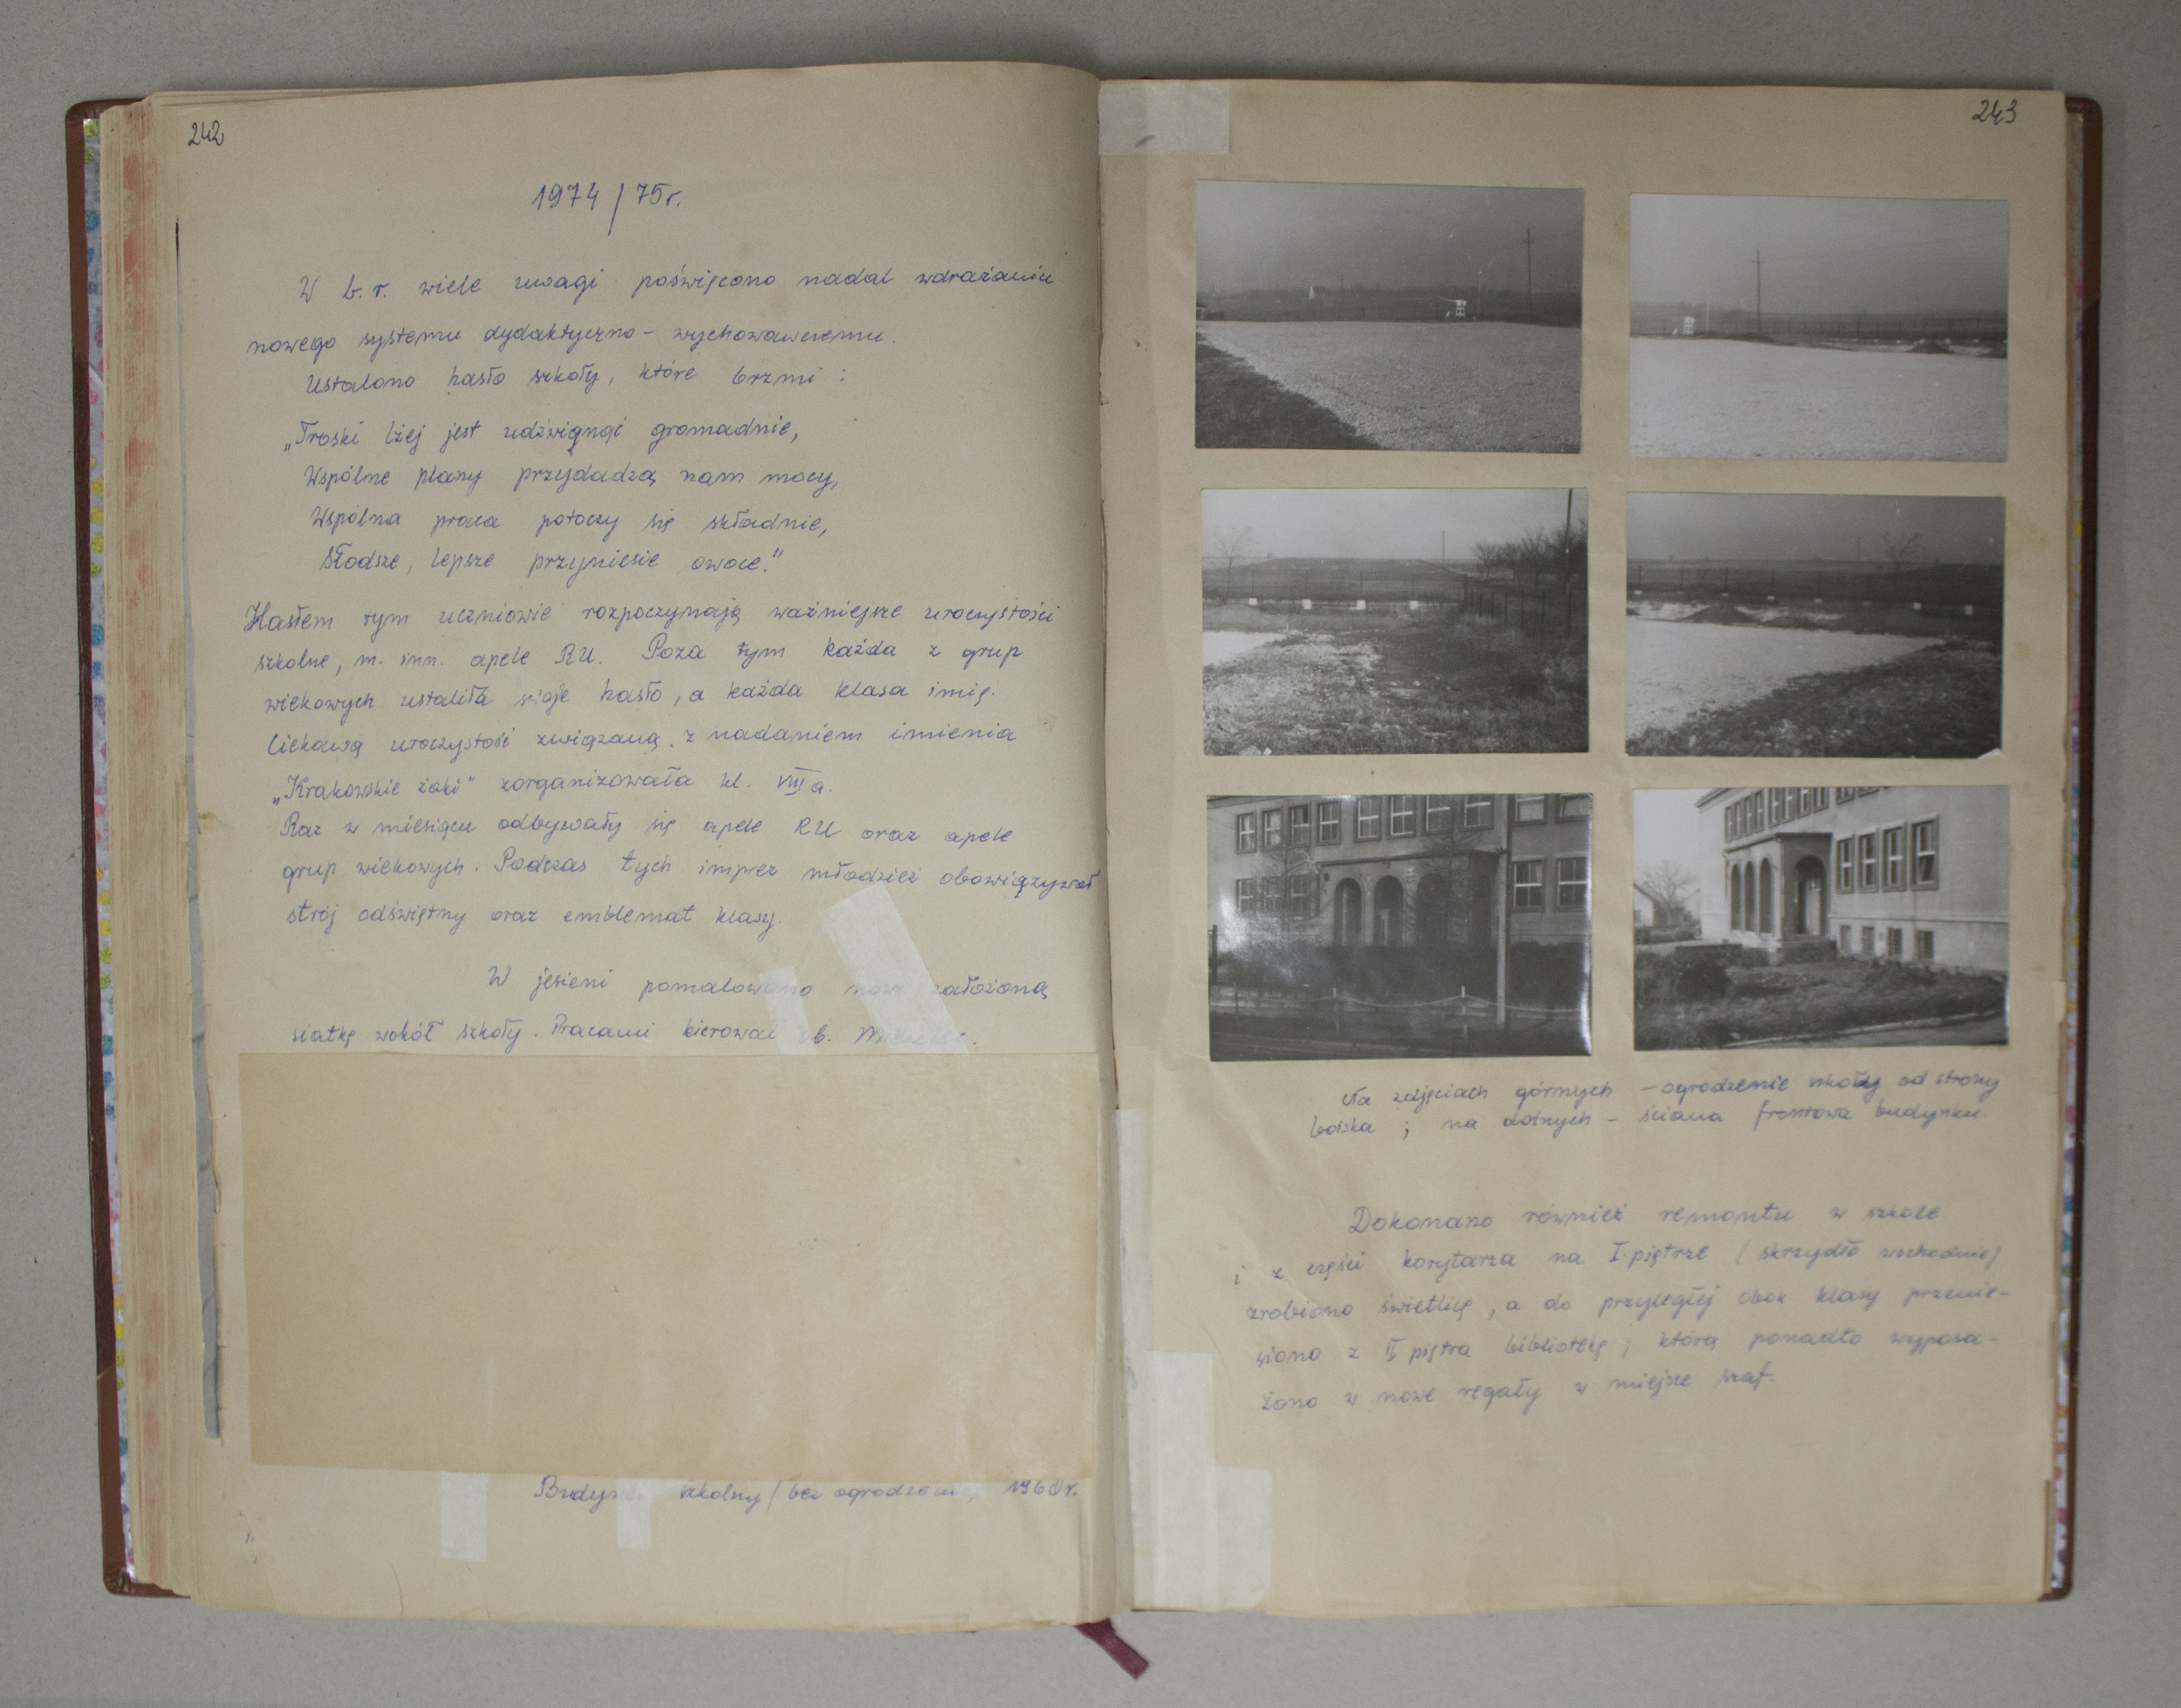 242
1974/75r.
W b.r. wiele uwagi poświęcono nadal wdrażaniu
nowego systemu dydaktyczno-wychowawczemu.
Ustalono hasło szkoły, które brzmi:
„Troski lżej jest udźwignąć gromadnie,
Wspólne plany przydadzą nam mocy,
Wspólna praca potoczy się składnie,
Słodsze, lepsze przyniesie owoce."
Hasłem tym uczniowie rozpoczynają ważniejsze uroczystości
szkolne, m. inn. apele RU. Poza tym każda z grup
wiekowych ustaliła swoje hasło, a każda klasa imię.
Ciekawą uroczystość związaną z nadaniem imienia
„Krakowskie żaki" zorganizowała kl. VIII a.
Raz w miesiącu odbywały się apele RU oraz apele
grup wiekowych. Podczas tych imprez młodzież obowiązywał
strój odświętny oraz emblemat klasy.
W jesieni pomalowano nowo założoną
siatkę wokół szkoły. Pracami kierował ob.
Budynek szkolny / bez ogrodzenia / 1960r.
243
Na zdjęciach górnych - ogrodzenie szkoły od strony
boiska; na dolnych - ściana frontowa budynku.
Dokonano również remontu w szkole
i z części korytarza na I piętrze (skrzydło wschodnie)
zrobiono świetlicę, a do przyległej obok klasy przenie-
siono z II piętra bibliotekę, którą ponadto wyposa-
żono w nowe regały w miejsce szaf.